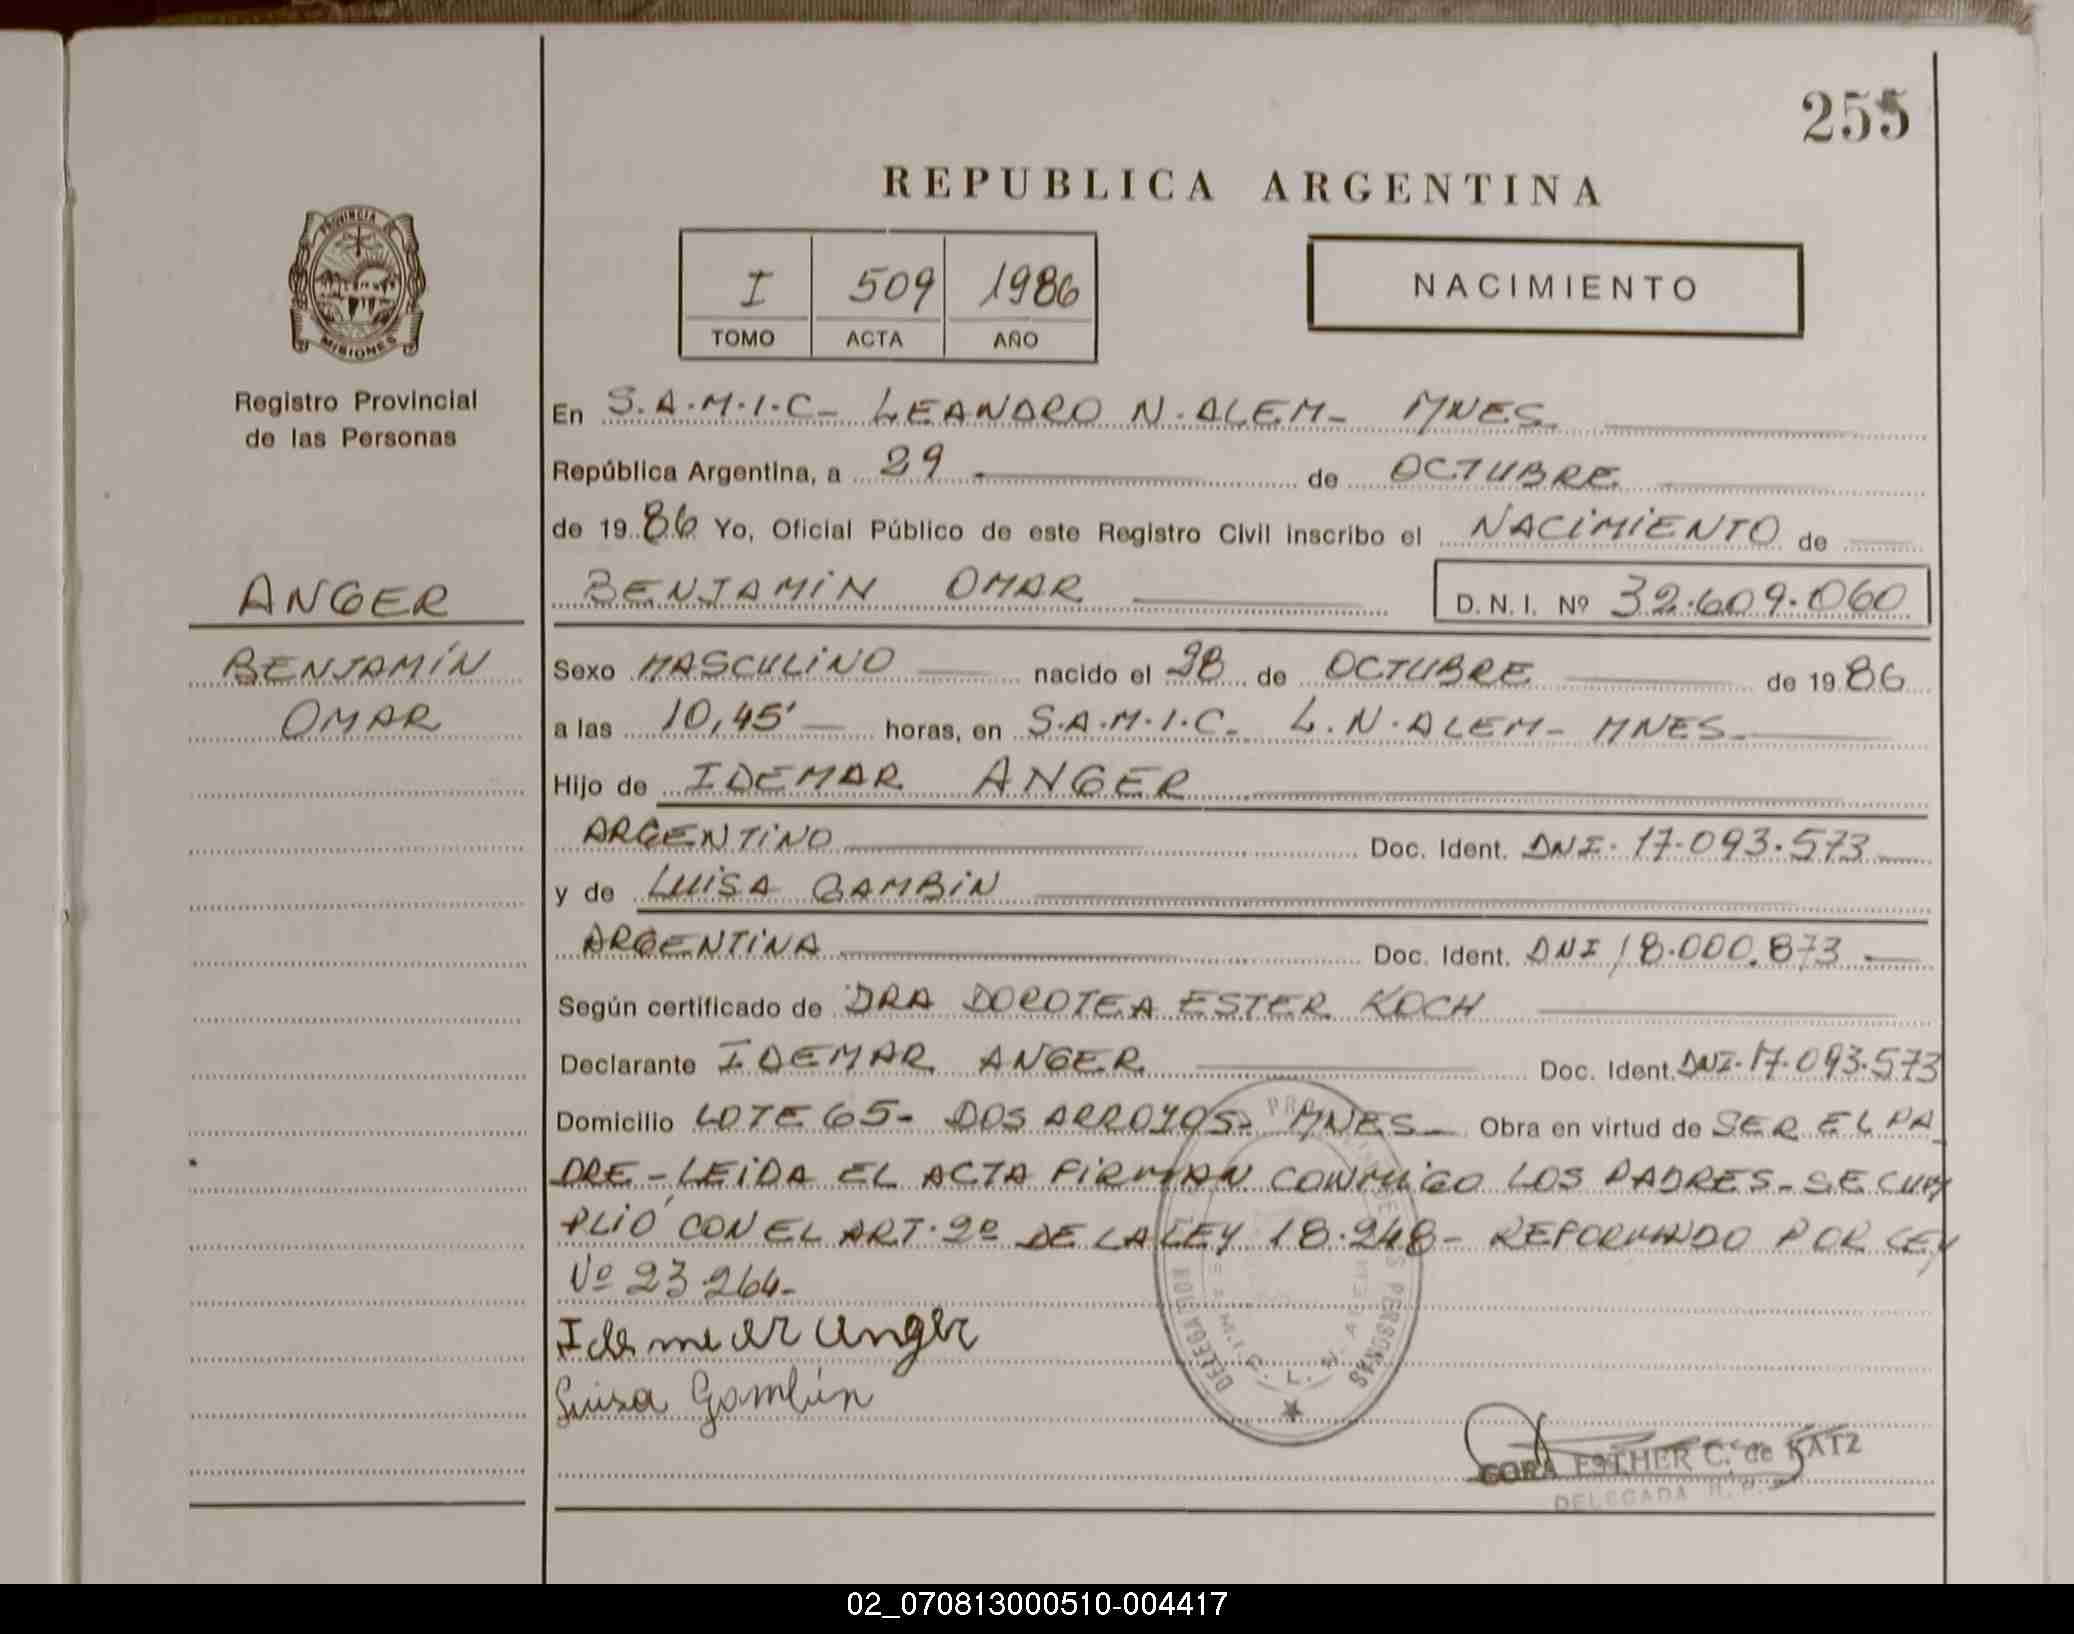 255
REPUBLICA ARGENTINA
I 509 1986
TOMO ACTA AÑO
NACIMIENTO
PROVINCIA DE
MISIONES
Registro Provincial
de las Personas
ANGER
BENJAMÍN
OMAR
En S.A.M.I.C- LEANDRO N.ALEM- MNES
República Argentina, a 29 de OCTUBRE
de 1986 Yo, Oficial Público de este Registro Civil inscribo el NACIMIENTO de
BENJAMIN OMAR D.N.I. Nº 32.609.060
Sexo MASCULINO nacido el 28 de OCTUBRE de 1986
a las 10,45' horas, en S.A.M.I.C- L.N.ALEM- MNES-
Hijo de IDEMAR ANGER
ARGENTINO Doc. Ident. DNI. 17.093.573
y de LUISA GAMBIN
ARGENTINA Doc. Ident. DNI 18.000.873
Según certificado de DRA DOROTEA ESTER KOCH
Declarante IDEMAR ANGER Doc. Ident. DNI.17.093.573
Domicilio LOTE 65- DOS ARROYOS- MNES- Obra en virtud de SER EL PA
DRE-LEIDA EL ACTA FIRMAN CONMIGO LOS PADRES-SE CUM
PLIÓ CON EL ART.2º DE LA LEY 18.248- REFORMADO POR LEY
Nº 23.264-
Idemar Anger
Luisa Gambín
DELEGACION PERSONAS
L. N. ALEM
CORA ESTHER C. de KATZ
DELEGADA R. P.
02_070813000510-004417